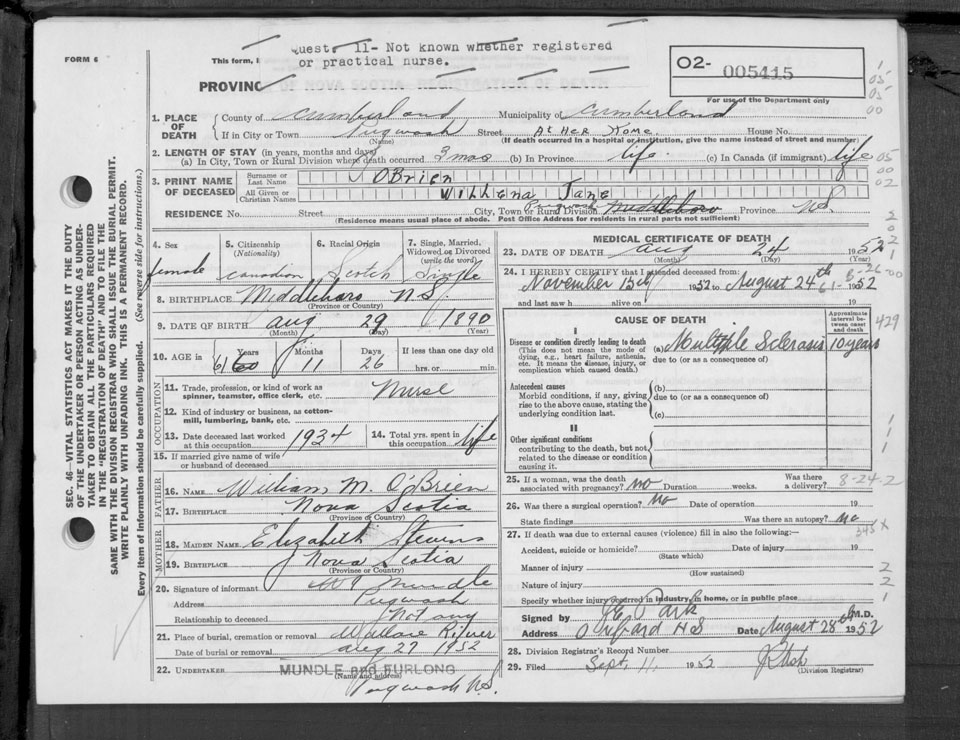 FORM 6
Quest. 11- Not known whether registered
or practical nurse.
This form,
PROVINC
O2- 005415
For use of the Department only
1. PLACE OF DEATH
County of Cumberland Municipality of Cumberland
If in City or Town Pugwash Street At Her Home. House No.
(Name) (If death occurred in a hospital or institution, give the name instead of street and number)
2. LENGTH OF STAY (in years, months and days)
(a) In City, Town or Rural Division where death occurred 3 mos (b) In Province life. (c) In Canada (if immigrant) life
3. PRINT NAME OF DECEASED
Surname or Last Name OBrien
All Given or Christian Names Willena Jane
RESIDENCE No. Street City, Town or Rural Division Pugwash Middleboro Province N.S.
(Residence means usual place of abode. Post Office Address for residents in rural parts not sufficient)
4. Sex female
5. Citizenship (Nationality) Canadian
6. Racial Origin Scotch
7. Single, Married, Widowed or Divorced (write the word) Single
8. BIRTHPLACE Middleboro N.S.
(Province or Country)
9. DATE OF BIRTH Aug 29 1890
(Month) (Day) (Year)
10. AGE in Years 61 60 Months 11 Days 26 If less than one day old hrs. or min.
OCCUPATION
11. Trade, profession, or kind of work as spinner, teamster, office clerk, etc. Nurse
12. Kind of industry or business, as cotton-mill, lumbering, bank, etc.
13. Date deceased last worked at this occupation 1934
14. Total yrs. spent in this occupation life
15. If married give name of wife or husband of deceased
FATHER
16. NAME William M. O'Brien
17. BIRTHPLACE Nova Scotia
(Province or Country)
MOTHER
18. MAIDEN NAME Elizabeth Stevens
19. BIRTHPLACE Nova Scotia
(Province or Country)
20. Signature of informant Mundle
Address Pugwash
Relationship to deceased Not any
21. Place of burial, cremation or removal Wallace River
Date of burial or removal Aug 27 1952
22. UNDERTAKER MUNDLE and FURLONG
(Name and address)
Pugwash N.S.
MEDICAL CERTIFICATE OF DEATH
23. DATE OF DEATH Aug 24 1952
(Month) (Day) (Year)
24. I HEREBY CERTIFY that I attended deceased from:
November 15th 1952 to August 24th 1952
and last saw h alive on 19
CAUSE OF DEATH
Approximate interval between onset and death
I
Disease or condition directly leading to death
(This does not mean the mode of dying, e.g., heart failure, asthenia, etc. It means the disease, injury, or complication which caused death.)
(a) Multiple Sclerosis 10 years
due to (or as a consequence of)
Antecedent causes
Morbid conditions, if any, giving rise to the above cause, stating the underlying condition last.
(b)
due to (or as a consequence of)
(c)
II
Other significant conditions
contributing to the death, but not related to the disease or condition causing it.
25. If a woman, was the death associated with pregnancy? no Duration weeks. Was there a delivery? 8-24-2
26. Was there a surgical operation? No Date of operation 19
State findings Was there an autopsy? no
27. If death was due to external causes (violence) fill in also the following:—
Accident, suicide or homicide? Date of injury 19
(State which)
Manner of injury
(How sustained)
Nature of injury
Specify whether injury occurred in industry, in home, or in public place
Signed by M.D.
Address Oxford N.S Date August 28th 1952
28. Division Registrar's Record Number
29. Filed Sept. 11, 1952
(Division Registrar)
SEC. 46—VITAL STATISTICS ACT MAKES IT THE DUTY
OF THE UNDERTAKER OR PERSON ACTING AS UNDER-
TAKER TO OBTAIN ALL THE PARTICULARS REQUIRED
IN THE "REGISTRATION OF DEATH" AND TO FILE THE
SAME WITH THE DIVISION REGISTRAR WHO SHALL ISSUE THE BURIAL PERMIT.
WRITE PLAINLY WITH UNFADING INK. THIS IS A PERMANENT RECORD.
Every item of information should be carefully supplied. (See reverse side for instructions.)
429
345 X